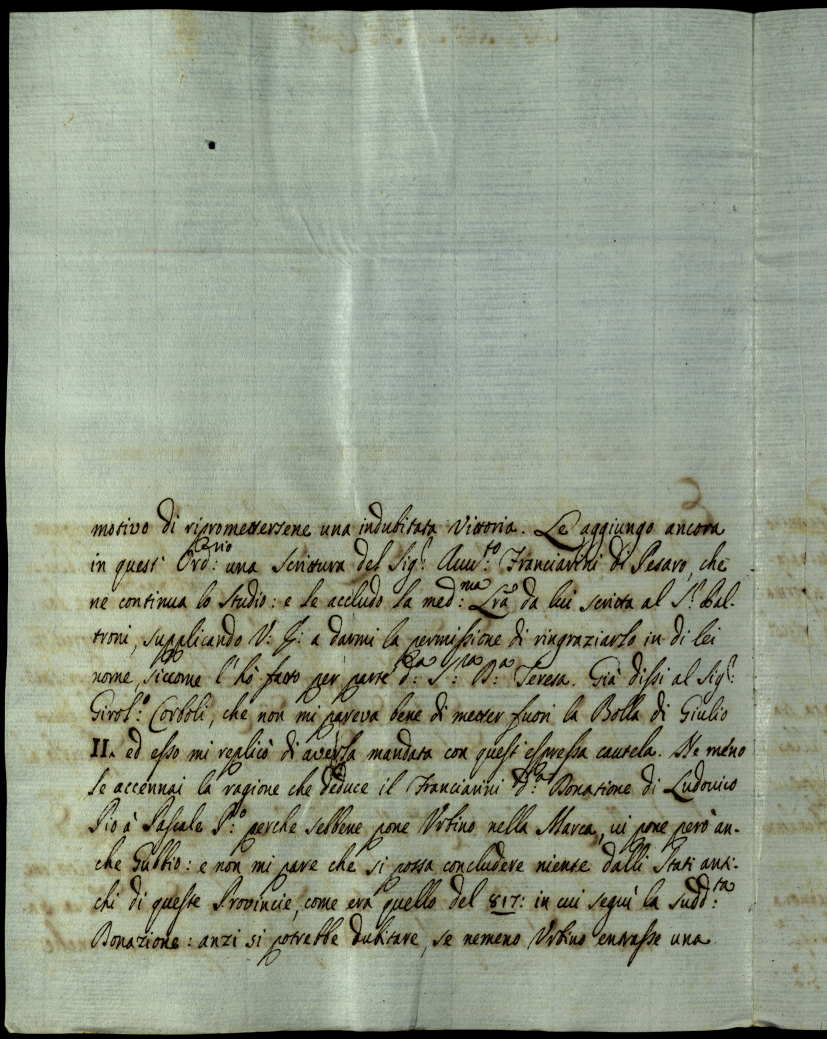 motivo di ripromettersene una indubitata Vittoria. Le aggiungo ancora
in quest' Ord:rio una Scrittura del Sig.r Auu:to Franciarini di Pesaro, che
ne continua lo Studio: e le accludo la med:ma Lrã da lui scritta al S.r Bal-
troni, supplicando V: S: a darmi la permissione di ringraziarlo in di lei
nome, siccome l' hò fatto per parte d:a S:ra D:a Teresa. Già dissi al Sig.r
Girol:o Corboli, che non mi pareva bene di metter fuori la Bolla di Giulio
II. ed esso mi replicò di averla mandata con quest' espressa cautela. Ne meno
le accennai la ragione che deduce il Franciarini d:a Donatione di Ludovico
Pio à Pascale P:o perche sebbene pone Vrbino nella Marca, vi pone però an-
che Gubbio: e non mi pare che si possa concludere niente dalli Stati anti-
chi di queste Provincie, come era quello del 817: in cui seguì la sudd:ta
Donazione: anzi si potrebbe dubitare, se nemeno Vrbino entrasse una